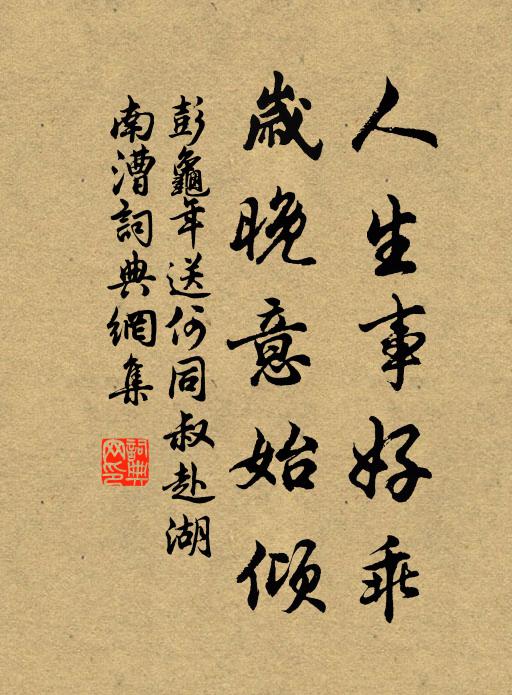 人生事好乖
歲晚意始傾
彭龜年送何同叔赴湖
南漕詞典網集
詞典
网印